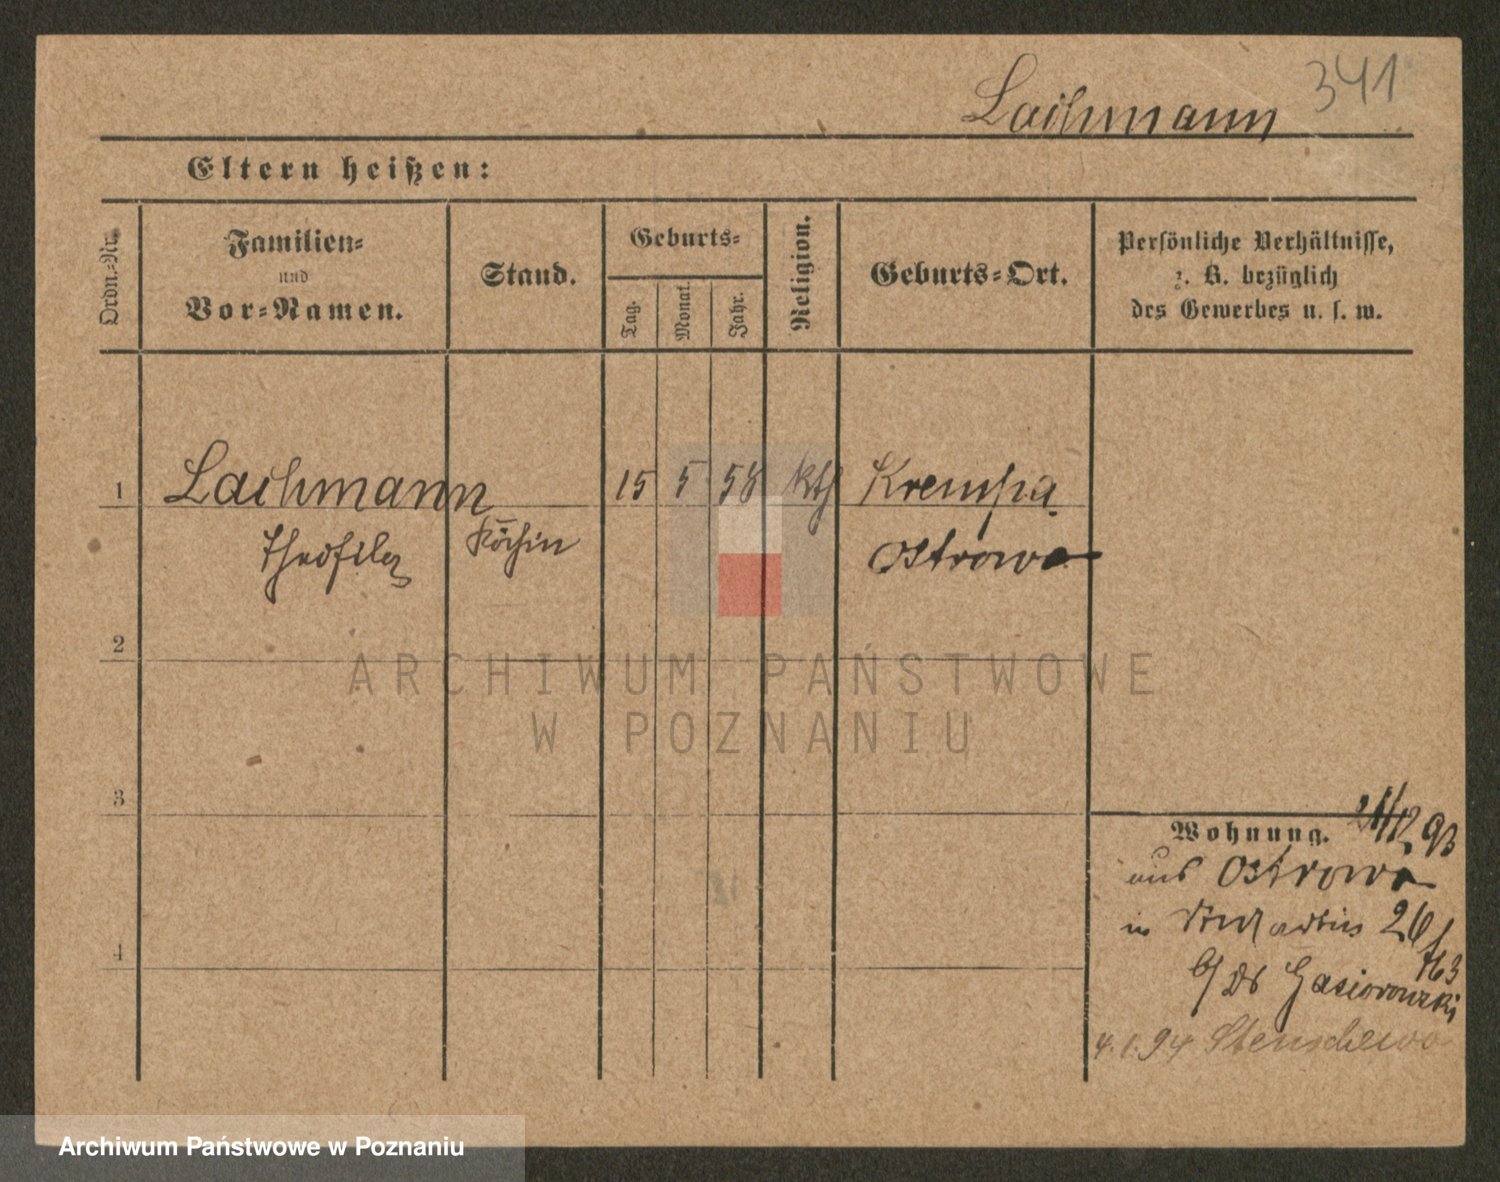 Lachmann 341
Eltern heißen:
Ordn.-Nr.
Familien-
und
Vor-Namen.
Stand.
Geburts-
Tag.
Monat.
Jahr.
Religion.
Geburts-Ort.
Persönliche Verhältnisse,
z. B. bezüglich
des Gewerbes u. s. w.
1 Lachmann 15 5 58 kth Krempa
Theofila Köchin Ostrowo
2
ARCHIWUM PAŃSTWOWE
W POZNANIU
3
Wohnung. 93
aus Ostrowo
in 26
b/ Dr Gasiorowski
4
4.1.94 Stenschewo
Archiwum Państwowe w Poznaniu